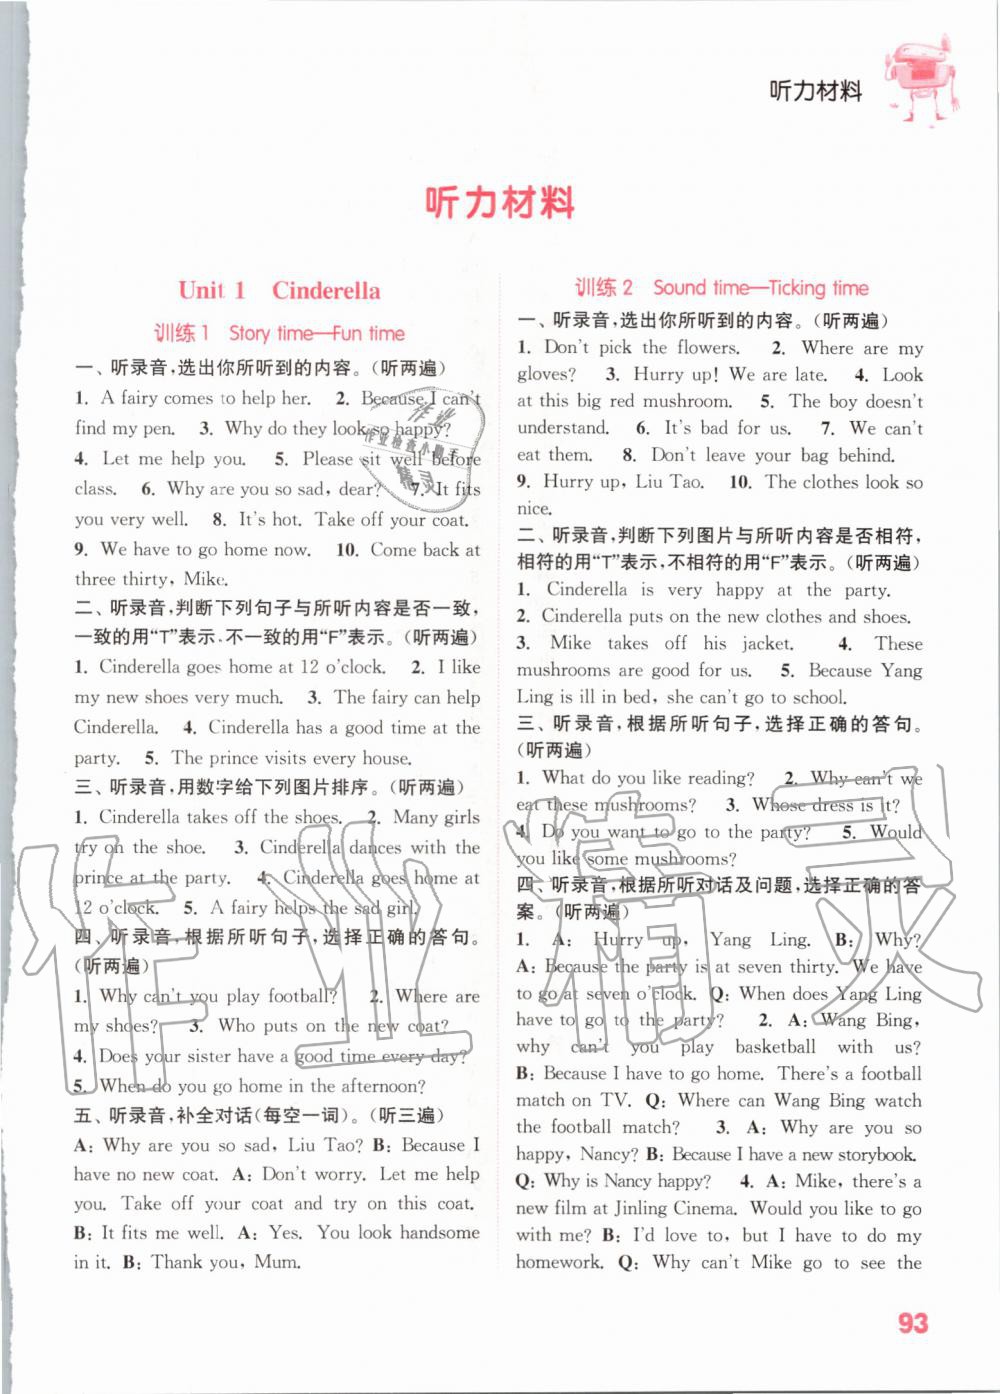 听力材料
听力材料
Unit 1 Cinderella
训练1 Story time—Fun time
一、听录音,选出你所听到的内容。(听两遍)
1. A fairy comes to help her. 2. Because I can't
find my pen. 3. Why do they look so happy?
4. Let me help you. 5. Please sit well before
class. 6. Why are you so sad, dear? 7. It fits
you very well. 8. It's hot. Take off your coat.
9. We have to go home now. 10. Come back at
three thirty, Mike.
二、听录音,判断下列句子与所听内容是否一致,
一致的用“T”表示,不一致的用“F”表示。(听两遍)
1. Cinderella goes home at 12 o'clock. 2. I like
my new shoes very much. 3. The fairy can help
Cinderella. 4. Cinderella has a good time at the
party. 5. The prince visits every house.
三、听录音,用数字给下列图片排序。(听两遍)
1. Cinderella takes off the shoes. 2. Many girls
try on the shoe. 3. Cinderella dances with the
prince at the party. 4. Cinderella goes home at
12 o'clock. 5. A fairy helps the sad girl.
四、听录音,根据所听句子,选择正确的答句。
(听两遍)
1. Why can't you play football? 2. Where are
my shoes? 3. Who puts on the new coat?
4. Does your sister have a good time every day?
5. When do you go home in the afternoon?
五、听录音,补全对话(每空一词)。(听三遍)
A: Why are you so sad, Liu Tao? B: Because I
have no new coat. A: Don't worry. Let me help
you. Take off your coat and try on this coat.
B: It fits me well. A: Yes. You look handsome
in it. B: Thank you, Mum.
训练2 Sound time—Ticking time
一、听录音,选出你所听到的内容。(听两遍)
1. Don't pick the flowers. 2. Where are my
gloves? 3. Hurry up! We are late. 4. Look
at this big red mushroom. 5. The boy doesn't
understand. 6. It's bad for us. 7. We can't
eat them. 8. Don't leave your bag behind.
9. Hurry up, Liu Tao. 10. The clothes look so
nice.
二、听录音,判断下列图片与所听内容是否相符,
相符的用“T”表示,不相符的用“F”表示。(听两遍)
1. Cinderella is very happy at the party.
2. Cinderella puts on the new clothes and shoes.
3. Mike takes off his jacket. 4. These
mushrooms are good for us. 5. Because Yang
Ling is ill in bed, she can't go to school.
三、听录音,根据所听句子,选择正确的答句。
(听两遍)
1. What do you like reading? 2. Why can't we
eat these mushrooms? 3. Whose dress is it?
4. Do you want to go to the party? 5. Would
you like some mushrooms?
四、听录音,根据所听对话及问题,选择正确的答
案。(听两遍)
1. A: Hurry up, Yang Ling. B: Why?
A: Because the party is at seven thirty. We have
to go at seven o'clock. Q: When does Yang Ling
have to go to the party? 2. A: Wang Bing,
why can't you play basketball with us?
B: Because I have to go home. There's a football
match on TV. Q: Where can Wang Bing watch
the football match? 3. A: Why are you so
happy, Nancy? B: Because I have a new storybook.
Q: Why is Nancy happy? 4. A: Mike, there's a
new film at Jinling Cinema. Would you like to go
with me? B: I'd love to, but I have to do my
homework. Q: Why can't Mike go to see the
93
作业
作业检查小助手
精灵
作业精灵